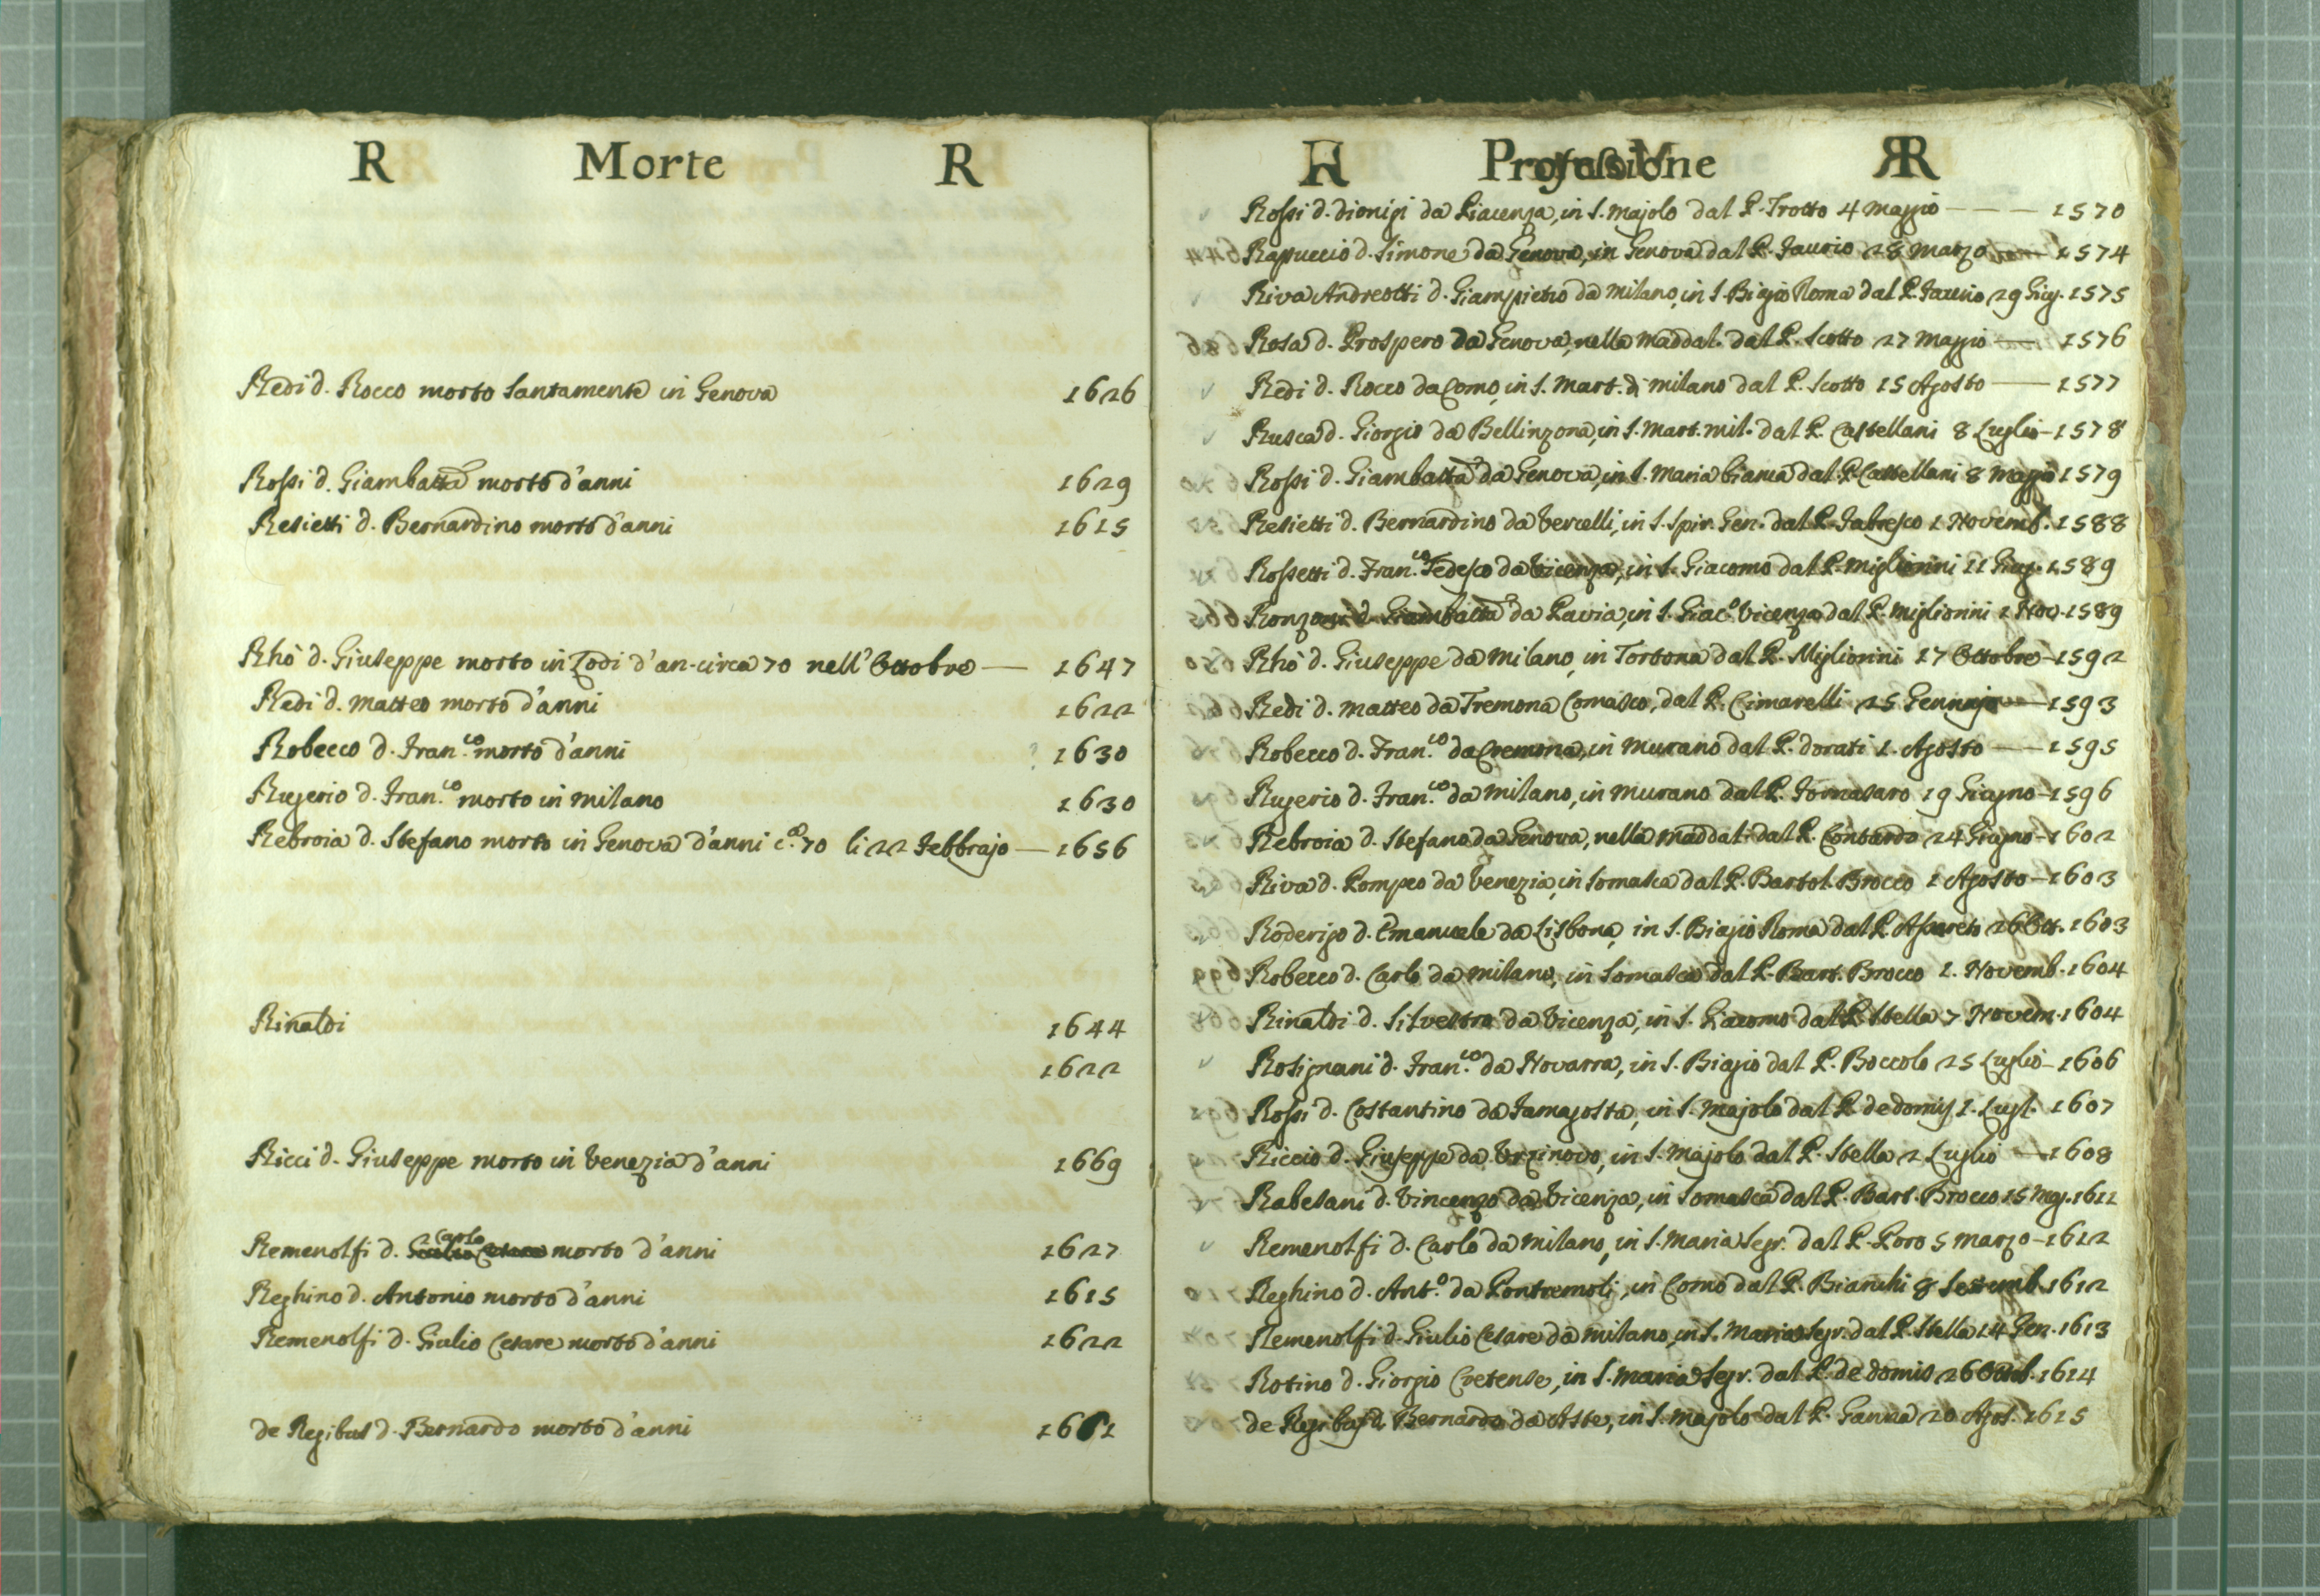 R Morte R
Redi d. Rocco morto santamente in Genova 1626
Rossi d. Giambatta morto d'anni 1629
Resietti d. Bernardino morto d'anni 1615
Rhò d. Giuseppe morto in Lodi d'an. circa 70 nell'Ottobre — 1647
Redi d. Matteo morto d'anni 1622
Robecco d. Fran.co morto d'anni 1630
Rugerio d. Fran.co morto in Milano 1630
Rebroia d. Stefano morto in Genova d'anni c.a 70 li 22 Febbrajo — 1656
Rinaldi 1644
1622
Ricci d. Giuseppe morto in Venezia d'anni 1669
Remenolfi d. Carlo morto d'anni 1627
Reghino d. Antonio morto d'anni 1615
Remenolfi d. Giulio Cesare morto d'anni 1622
de Regibus d. Bernardo morto d'anni
Professione R
Rossi d. Dionigi da Piacenza, in S. Majolo dal P. Trotto 4 Maggio — — — 1570
Rapuccio d. Simone da Genova, in Genova dal P. 28 Marzo — 1574
Riva Andreotti d. Giampietro da Milano, in S. Biagio Roma dal P. 29 Giug. 1575
Rosa d. Prospero da Genova, nella Maddal. dal P. Scotto 27 Maggio — 1576
Redi d. Rocco da Como, in S. Mart. di Milano dal P. Scotto 15 Agosto — 1577
Rusca d. Giorgio da Bellinzona, in S. Mart. Mil. dal P. Castellani 8 Luglio — 1578
Rossi d. Giambatta da Genova, in S. Maria bianca dal P. Castellani 8 Maggio 1579
Resietti d. Bernardino da Vercelli, in S. Spir. Gen. dal P. 1 Novemb. 1588
Rossetti d. Fran.co Tedesco da Vicenza, in S. Giacomo dal P. Migliorini 11 Giug. 1589
Ronzoni d. Giambatta da Pavia, in S. Giac.o Vicenza dal P. Migliorini 1 Nov. 1589
Rhò d. Giuseppe da Milano, in Tortona dal P. Migliorini 17 Ottobre — 1592
Redi d. Matteo da Tremona Comasco, dal P. Cimarelli 25 Gennajo — 1593
Robecco d. Fran.co da Cremona, in Murano dal P. Dorati 1. Agosto — 1595
Rugerio d. Fran.co da Milano, in Murano dal P. Fornasaro 19 Giugno — 1596
Rebroia d. Stefano da Genova, nella Maddal. dal P. Contardo 24 Giugno — 1602
Riva d. Pompeo da Venezia, in Somasca dal P. Bartol. Brocco 1 Agosto — 1603
Roderigo d. Emanuele da Lisbona, in S. Biagio Roma dal P. Assereto 26 Ott. 1603
Robecco d. Carlo da Milano, in Somasca dal P. Bart. Brocco 1. Novemb. 1604
Rinaldi d. Silvestro da Vicenza, in S. Giacomo dal P. Stella 7 Novem. 1604
Rosignani d. Fran.co da Novarra, in S. Biagio dal P. Boccolo 25 Luglio — 1606
Rossi d. Costantino da Famagosta, in S. Majolo dal P. de Domis 1. Lugl. 1607
Riccio d. Giuseppe da Urzinovo, in S. Majolo dal P. Stella 2 Luglio — 1608
Rabesani d. Vincenzo da Vicenza, in Somasca dal P. Bart. Brocco 15 Mag. 1611
Remenolfi d. Carlo da Milano, in S. Maria Segr. dal P. Poro 5 Marzo — 1612
Reghino d. Ant.o da Pontremoli, in Como dal P. Bianchi 8 Settemb. 1612
Remenolfi d. Giulio Cesare da Milano, in S. Maria Segr. dal P. Stella 14 Gen. 1613
Rotino d. Giorgio Cretense, in S. Maria Segr. dal P. de Domis 26 1614
de Regibus d. Bernardo da Aste, in S. Majolo dal P. Ganna 20 Agos. 1615